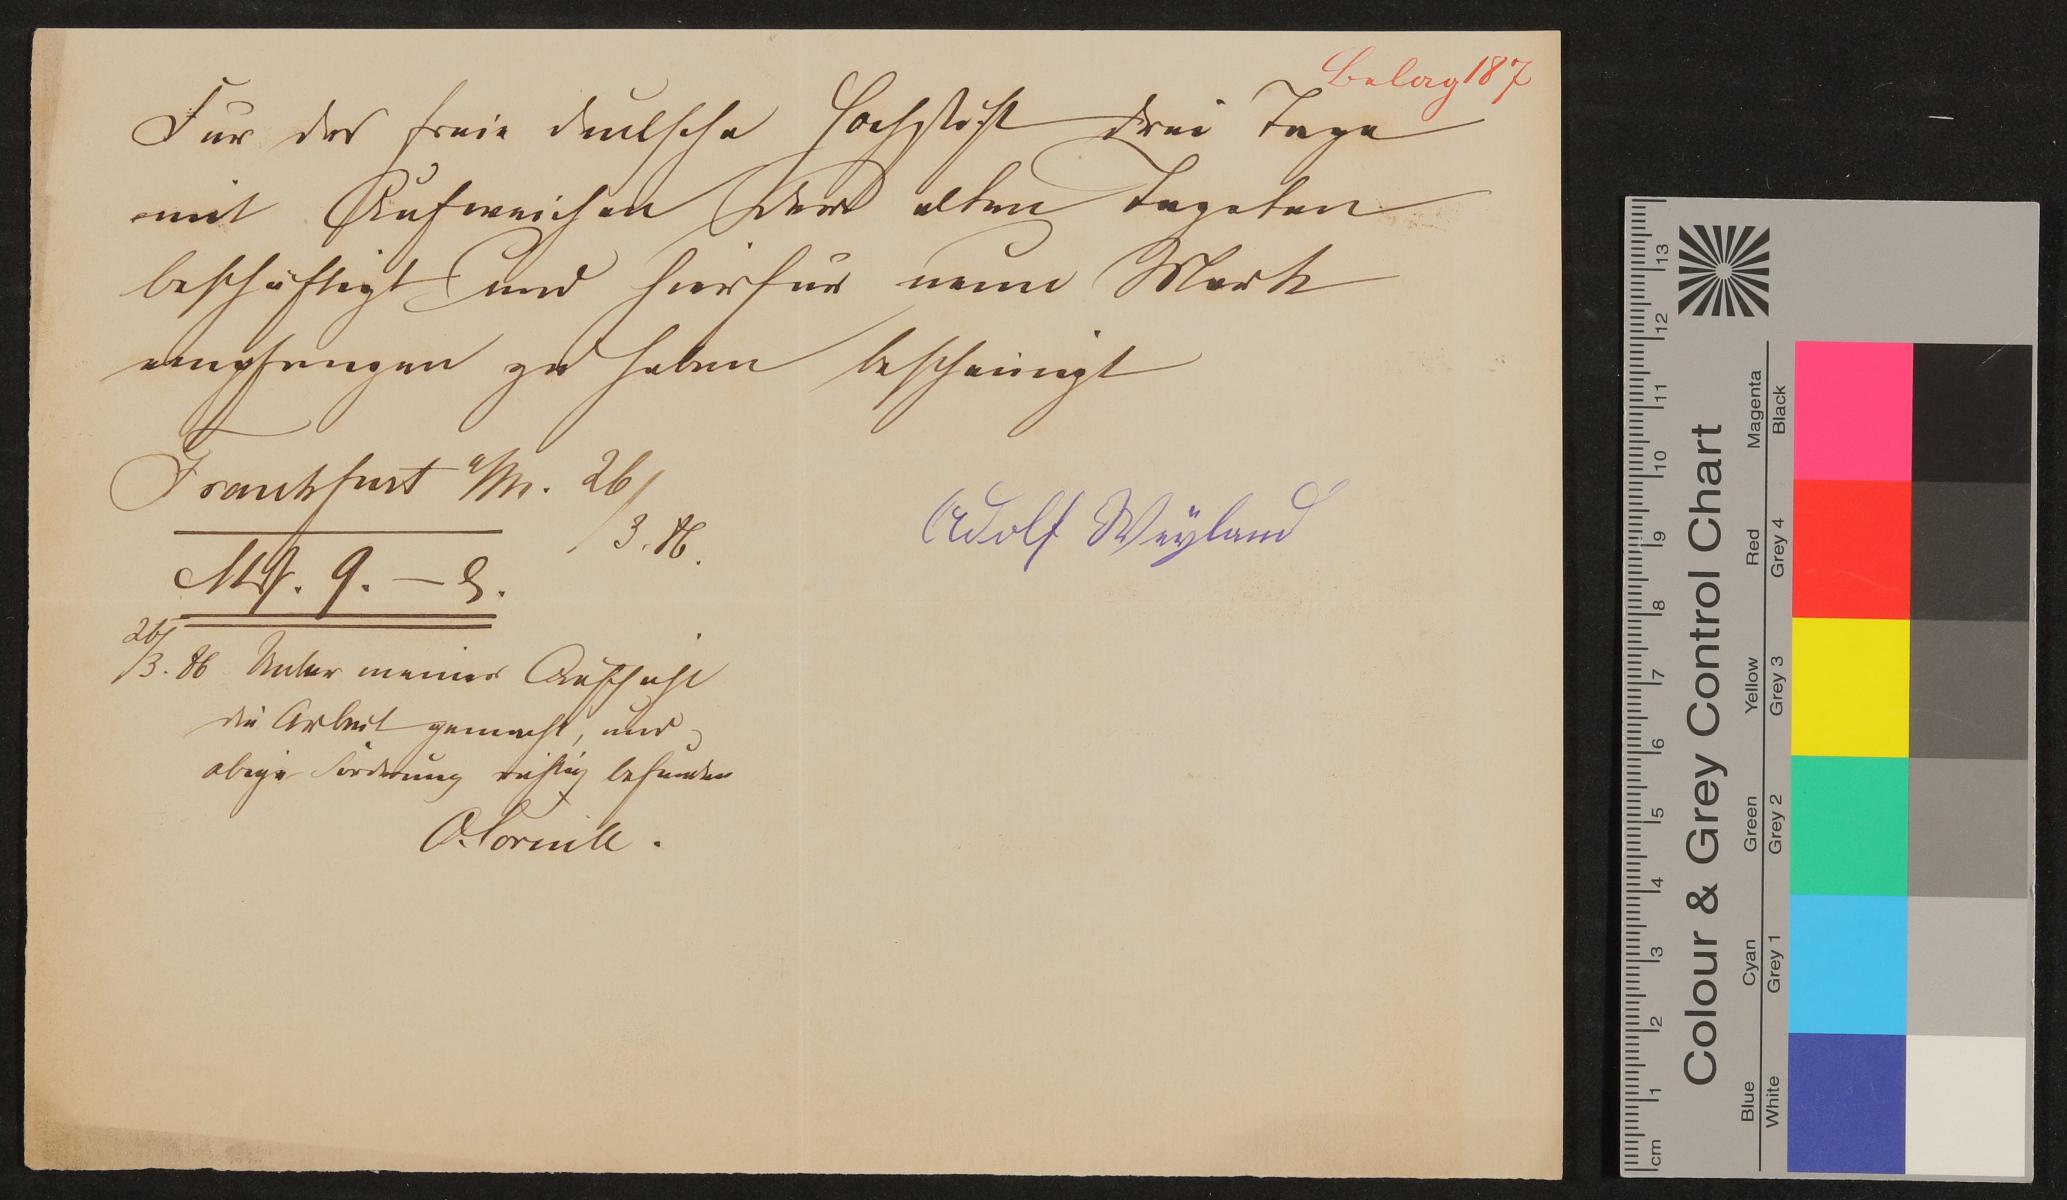 Belag 187
Für das freie deutsche Hochstift drei Tage
mit Aufweichen der alten Tapeten
beschäftigt und hierfür neun Mark
empfangen zu haben bescheinigt
Frankfurt a/M. 26/3. 86.
Adolf Weyland
Mk. 9. —
26/3. 86 Unter meiner Aufsicht
die Arbeit gemacht, und
obige Forderung richtig befunden
O. Cornill.
Colour & Grey Control Chart
Blue Cyan Green Yellow Red Magenta
White Grey 1 Grey 2 Grey 3 Grey 4 Black
cm 1 2 3 4 5 6 7 8 9 10 11 12 13